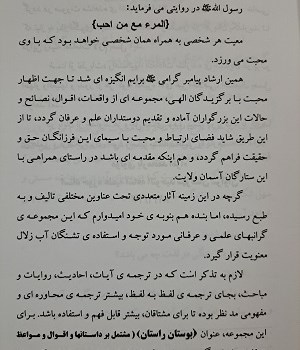 رسول الله ﷺ در روایتی می فرماید:
{المرء مع من احب}
معیت هر شخصی به همراه همان شخصی خواهد بود که با وی
محبت می ورزد.
همین ارشاد پیامبر گرامی ﷺ برایم انگیزه ای شد تا جهت اظهار
محبت با برگزیدگان الهی، مجموعه ای از واقعات، اقوال، نصائح و
حالات این بزرگواران آماده و تقدیم دوستداران علم و عرفان گردد، تا از
این طریق شاید فضای ارتباط و محبت با سیمای این فرزانگان حق و
حقیقت فراهم گردد، و هم اینکه مقدمه ای باشد در راستای همراهی با
این ستارگان آسمان ولایت.
گرچه در این زمینه آثار متعددی تحت عناوین مختلفی تالیف و به
طبع رسیده، اما بنده هم بنوبه ی خود امیدوارم که این مجموعه ی
گرانبهای علمی و عرفانی مورد توجه و استفاده ی تشنگان آب زلال
معنویت قرار گیرد.
لازم به تذکر است که در ترجمه ی آیات، احادیث، روایات و
مباحث، بجای ترجمه ی لفظ به لفظ، بیشتر ترجمه ی محاوره ای و
مفهومی مد نظر بوده تا برای مشتاقان، بیشتر قابل فهم و استفاده باشد. برای
این مجموعه، عنوان (بوستان راستان) (مشتمل بر داستانها و اقوال و مواعظ